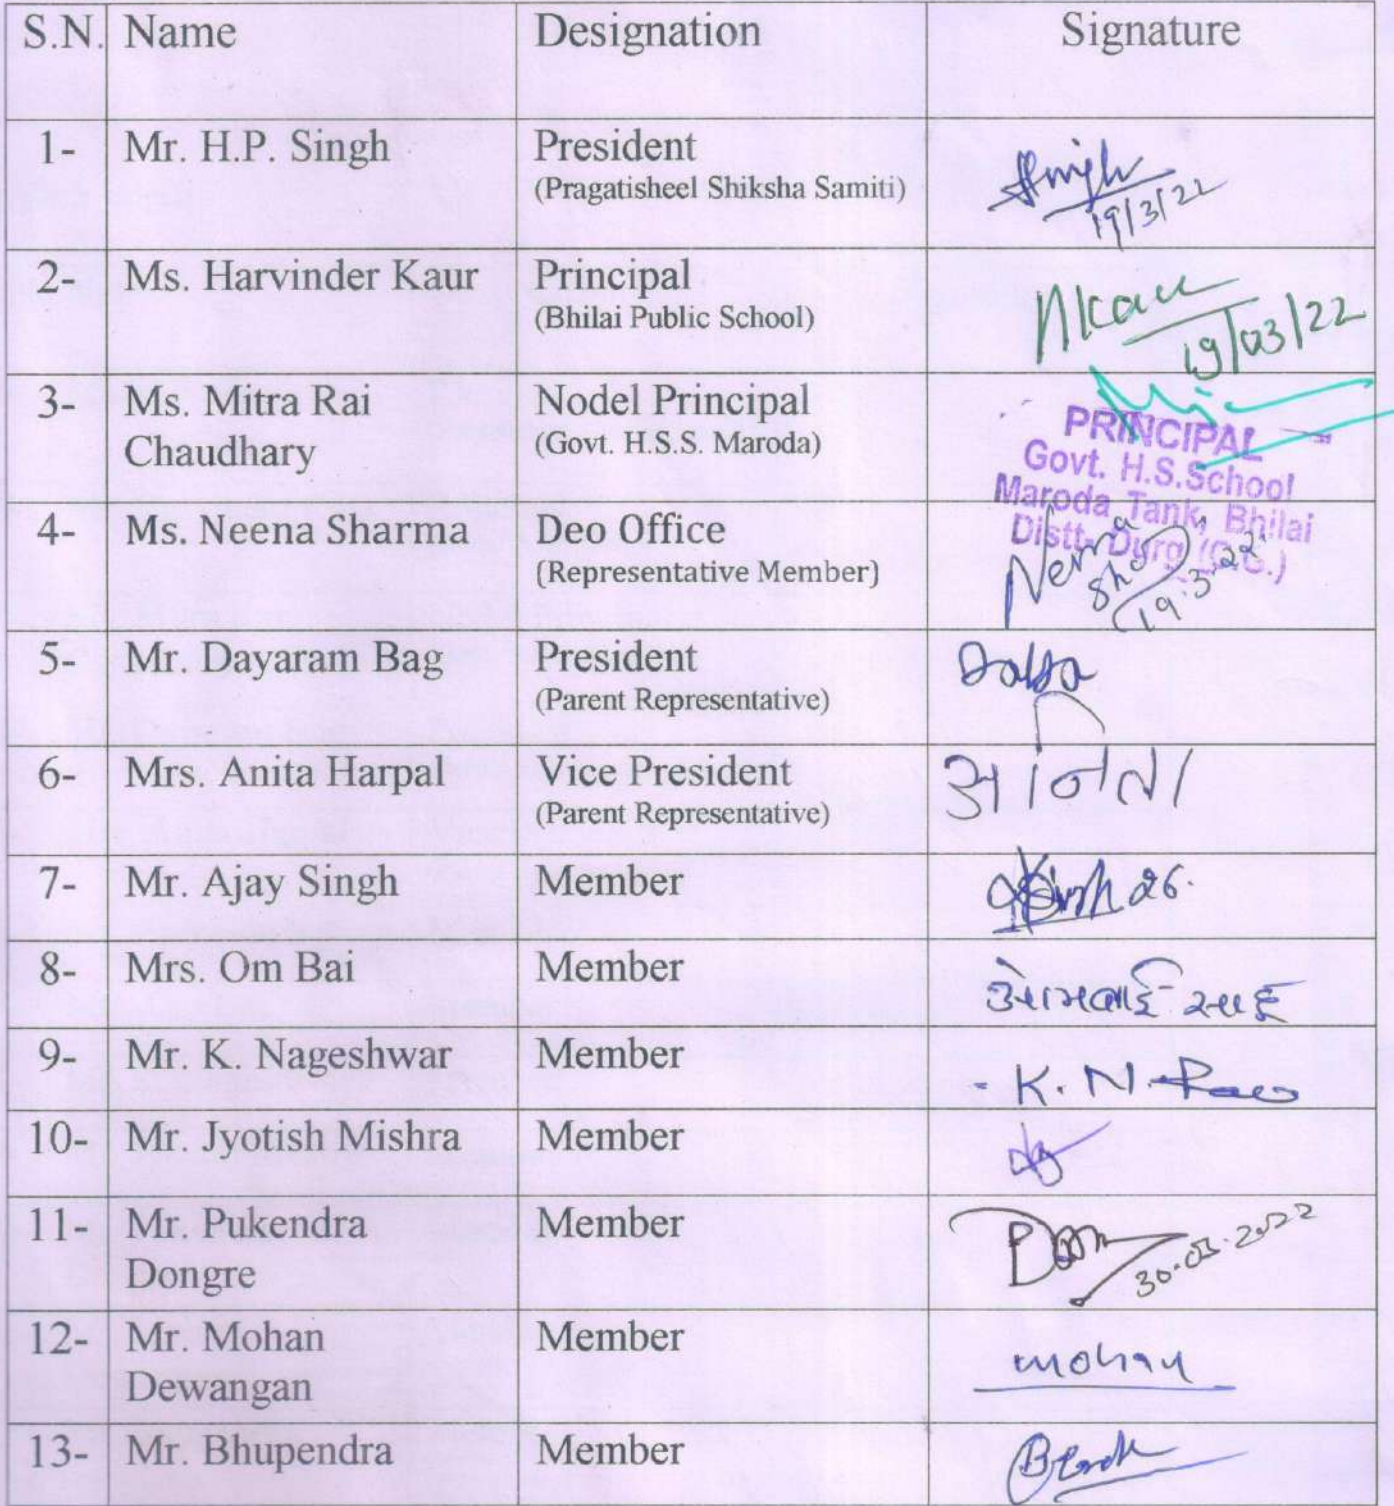 S.N. Name Designation Signature
1- Mr. H.P. Singh President
(Pragatisheel Shiksha Samiti)
19/3/22
2- Ms. Harvinder Kaur Principal
(Bhilai Public School)
19/03/22
3- Ms. Mitra Rai Nodel Principal
Chaudhary (Govt. H.S.S. Maroda)
PRINCIPAL
Govt. H.S.School
Maroda Tank, Bhilai
Distt. Durg (C.G.)
4- Ms. Neena Sharma Deo Office
(Representative Member)
19.3.22
5- Mr. Dayaram Bag President
(Parent Representative)
6- Mrs. Anita Harpal Vice President
(Parent Representative)
7- Mr. Ajay Singh Member
8- Mrs. Om Bai Member
9- Mr. K. Nageshwar Member K. N. Rao
10- Mr. Jyotish Mishra Member
11- Mr. Pukendra Member
Dongre
30.03.2022
12- Mr. Mohan Member mohan
Dewangan
13- Mr. Bhupendra Member